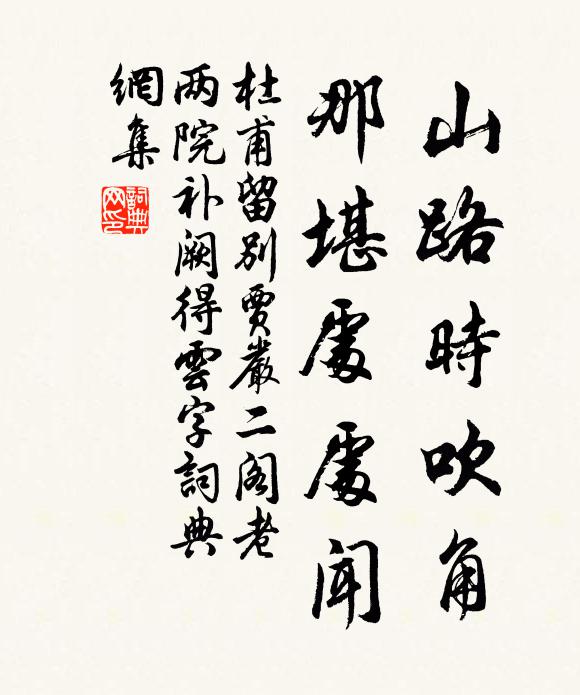 山路時吹角
那堪處處聞
杜甫留別賈嚴二阁老
两院补阙得雲字詞典
網集
詞典网印